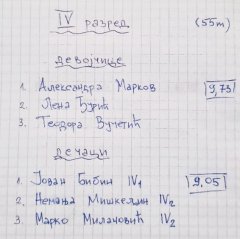 IV разред (55m)
девојчице
1. Александра Марков 9,73
2. Лена Ђурић
3. Теодора Вучетић
дечаци
1. Јован Бибин IV1 9,05
2. Немања Мишкељин IV2
3. Марко Милановић IV2